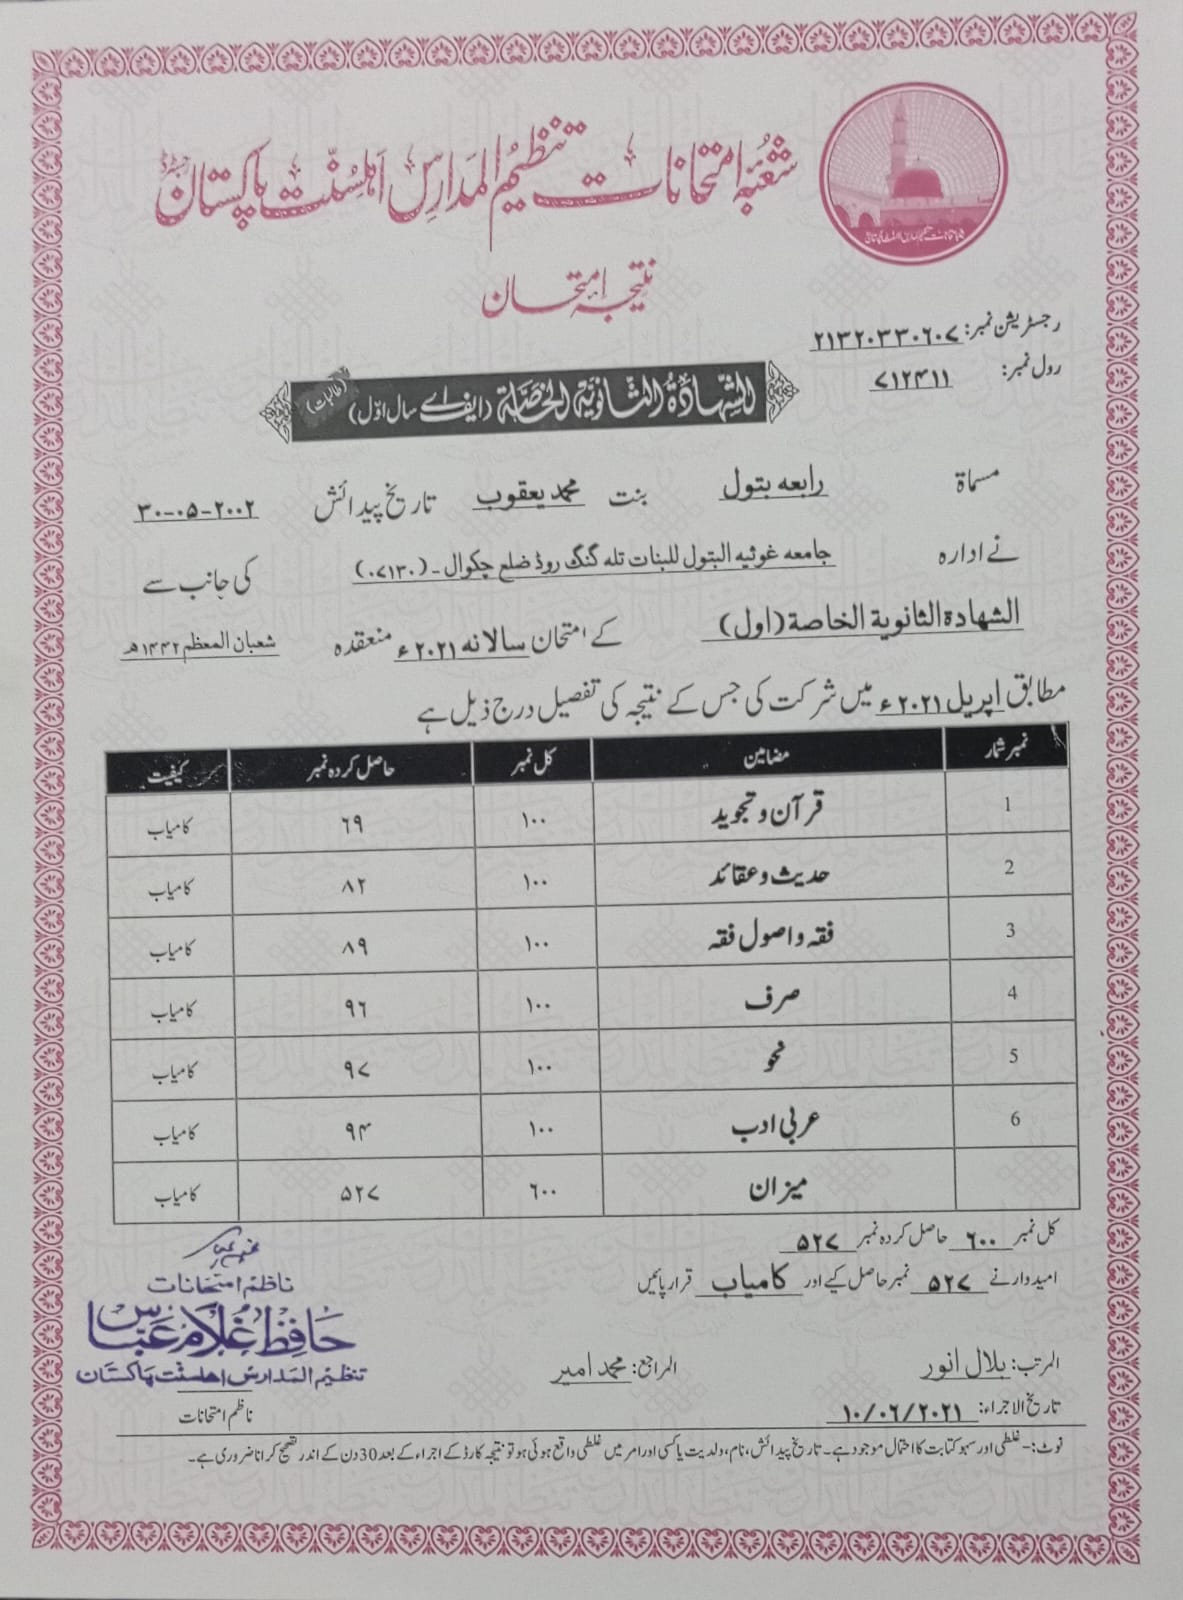 شعبۂ امتحانات تنظیم المدارس اہلسنت پاکستان رجسٹرڈ
نتیجہ امتحان
رجسٹریشن نمبر: ۲۱۳۲۰۳۳۰۶۰۷
رول نمبر: ۷۱۲۴۱۱
الشہادۃ الثانویۃ الخاصۃ (ایف اے سال اول) (طالبات)
مسماۃ رابعہ بتول بنت محمد یعقوب تاریخ پیدائش ۳۰-۰۵-۲۰۰۲
نے ادارہ جامعہ غوثیہ البتول للبنات تلہ گنگ روڈ ضلع چکوال ۔ (۰۷۱۳۰) کی جانب سے
الشهادة الثانوية الخاصة (اول) کے امتحان سالانہ ۲۰۲۱ء منعقدہ شعبان المعظم ۱۴۴۲ھ
مطابق اپریل ۲۰۲۱ء میں شرکت کی جس کے نتیجہ کی تفصیل درج ذیل ہے
نمبر شمار مضامین کل نمبر حاصل کردہ نمبر کیفیت
1 قرآن و تجوید ۱۰۰ ۶۹ کامیاب
2 حدیث و عقائد ۱۰۰ ۸۲ کامیاب
3 فقہ و اصول فقہ ۱۰۰ ۸۹ کامیاب
4 صرف ۱۰۰ ۹۶ کامیاب
5 نحو ۱۰۰ ۹۷ کامیاب
6 عربی ادب ۱۰۰ ۹۴ کامیاب
میزان ۶۰۰ ۵۲۷ کامیاب
کل نمبر ۶۰۰ حاصل کردہ نمبر ۵۲۷
امیدوار نے ۵۲۷ نمبر حاصل کیے اور کامیاب قرار پائیں
ناظم امتحانات
حافظ غلام عباس
تنظیم المدارس اھلسنت پاکستان
المرتب: بلال انور المراجع: محمد امیر
تاریخ الاجراء: ۱۰/۰۶/۲۰۲۱ ناظم امتحانات
نوٹ:- غلطی اور سہو کتابت کا احتمال موجود ہے۔ تاریخ پیدائش، نام، ولدیت یا کسی اور امر میں غلطی واقع ہوئی ہو تو نتیجہ کارڈ کے اجراء کے بعد 30 دن کے اندر تصحیح کرانا ضروری ہے۔